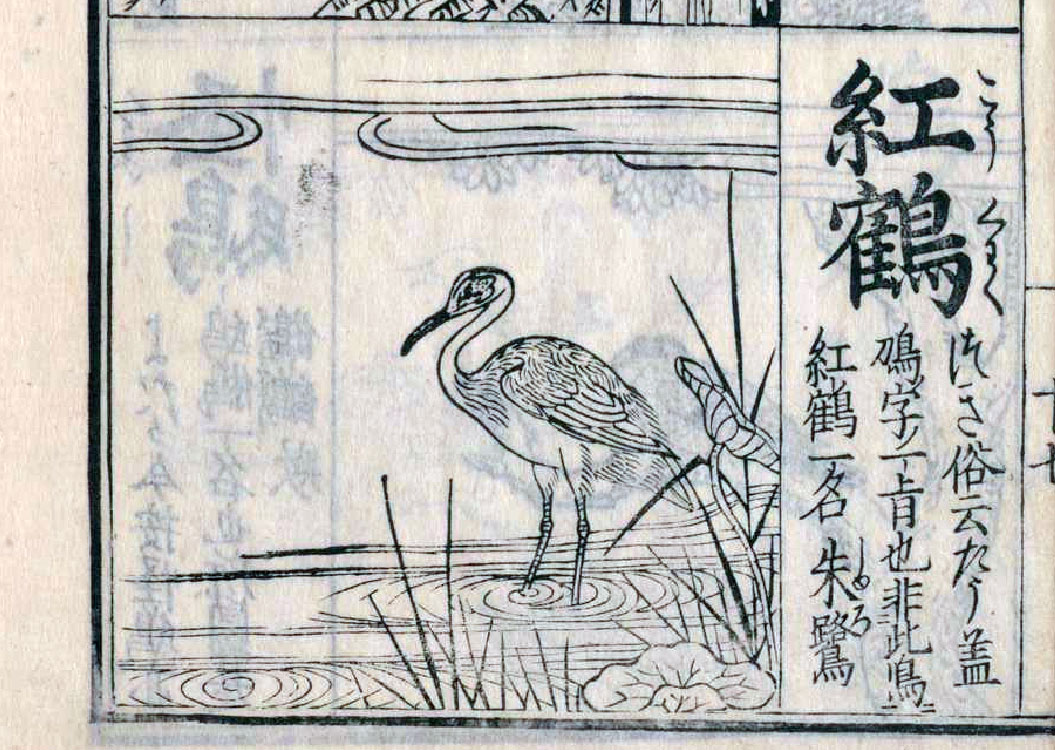 紅鶴
こうくわく
つき俗云たう盖
鴇字之音也非此鳥
紅鶴一名朱鷺
しゆろ
十七